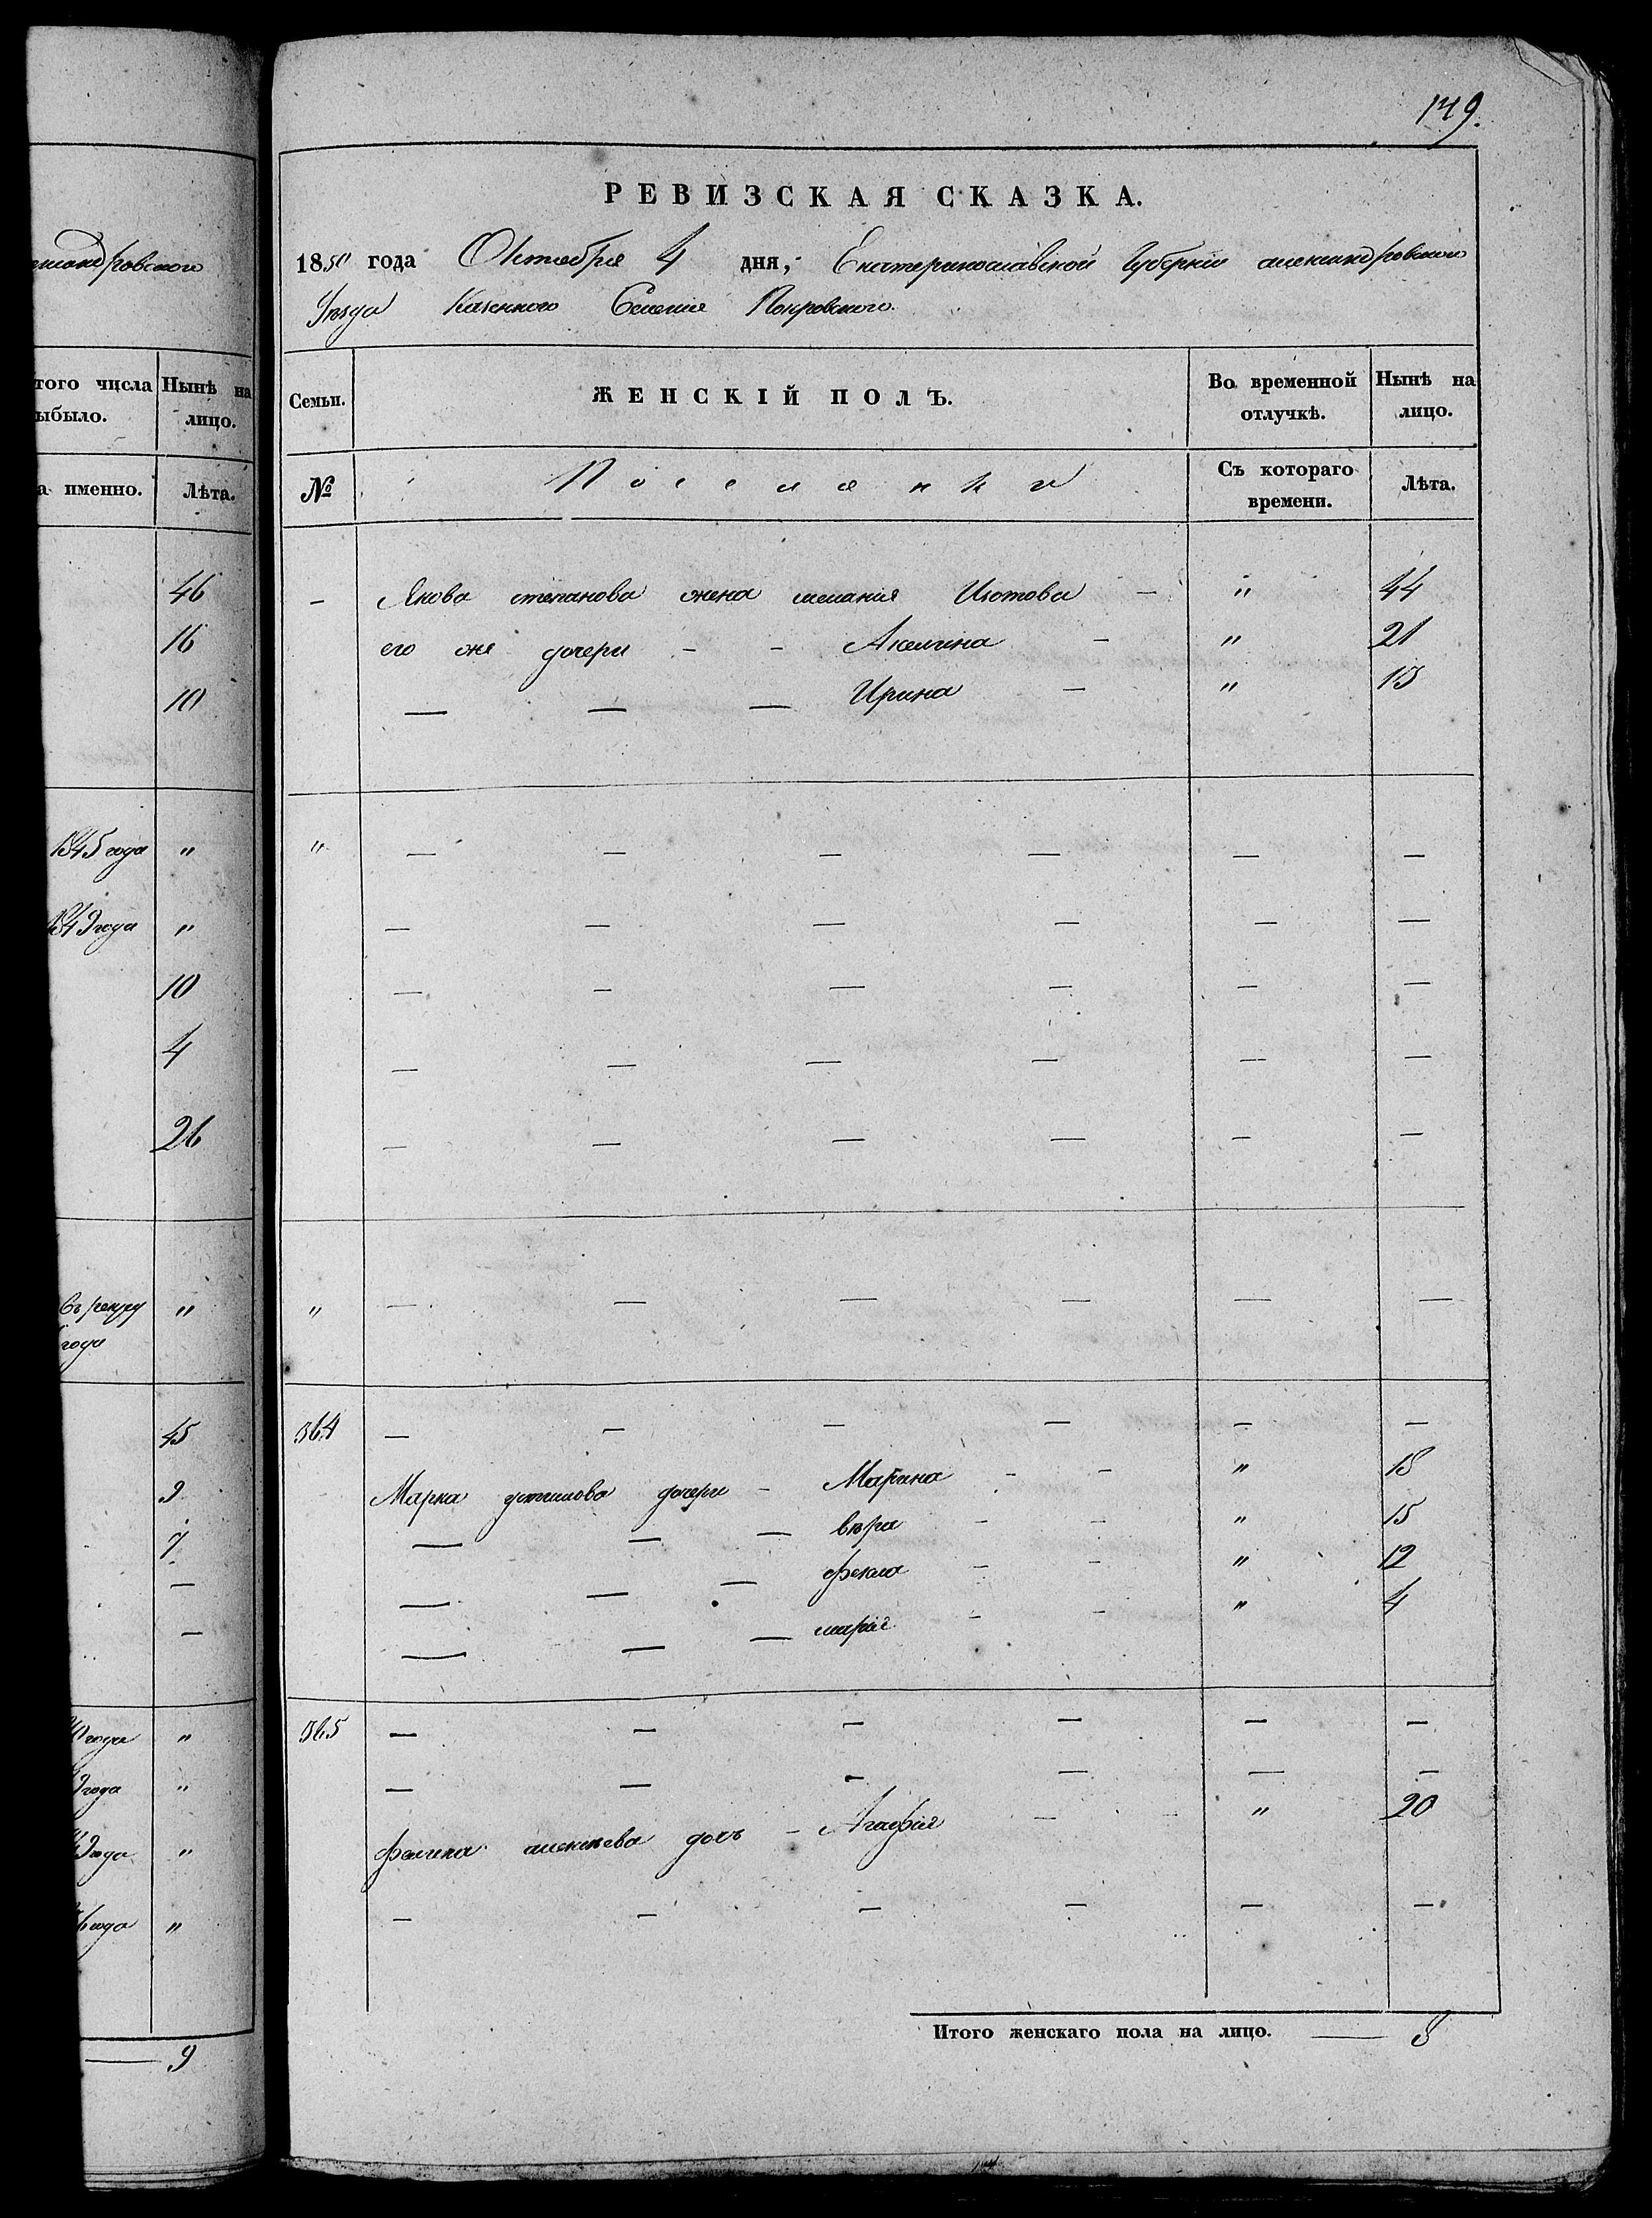 149.
РЕВИЗСКАЯ СКАЗКА.
1850 года Октября 4 дня, Екатеринославской Губернии александровского
Уезда Казенного Селения Покровского.
того числа Нынѣ на
ыбыло. лицо.
а именно. Лѣта.
Семьи. ЖЕНСКІЙ ПОЛЪ. Во временной отлучкѣ. Нынѣ на лицо.
№ Поселянки Съ котораго времени. Лѣта.
46
16
10
— Якова степанова жена мелания Изотова — " 44
его же дочери — — Акилина — " 21
— — — Ирина — " 13
1845 года "
1849 года "
10
4
26
" — — — — — —
— — — — — —
— — — — — —
— — — — — —
— — — — — —
"
года
" — — — — — —
45
9
7
—
—
364 — — — — — —
Марка дочери — Марина — — " 18
— — — вѣра — — " 15
— — — фекла — — " 12
— — — марія — — " 4
года "
9 года "
9 года "
6 года "
365 — — — — — —
— — — — — —
алексѣева дочь — Агафія — " 20
— — — — — —
— 9
Итого женскаго пола на лицо. — 8